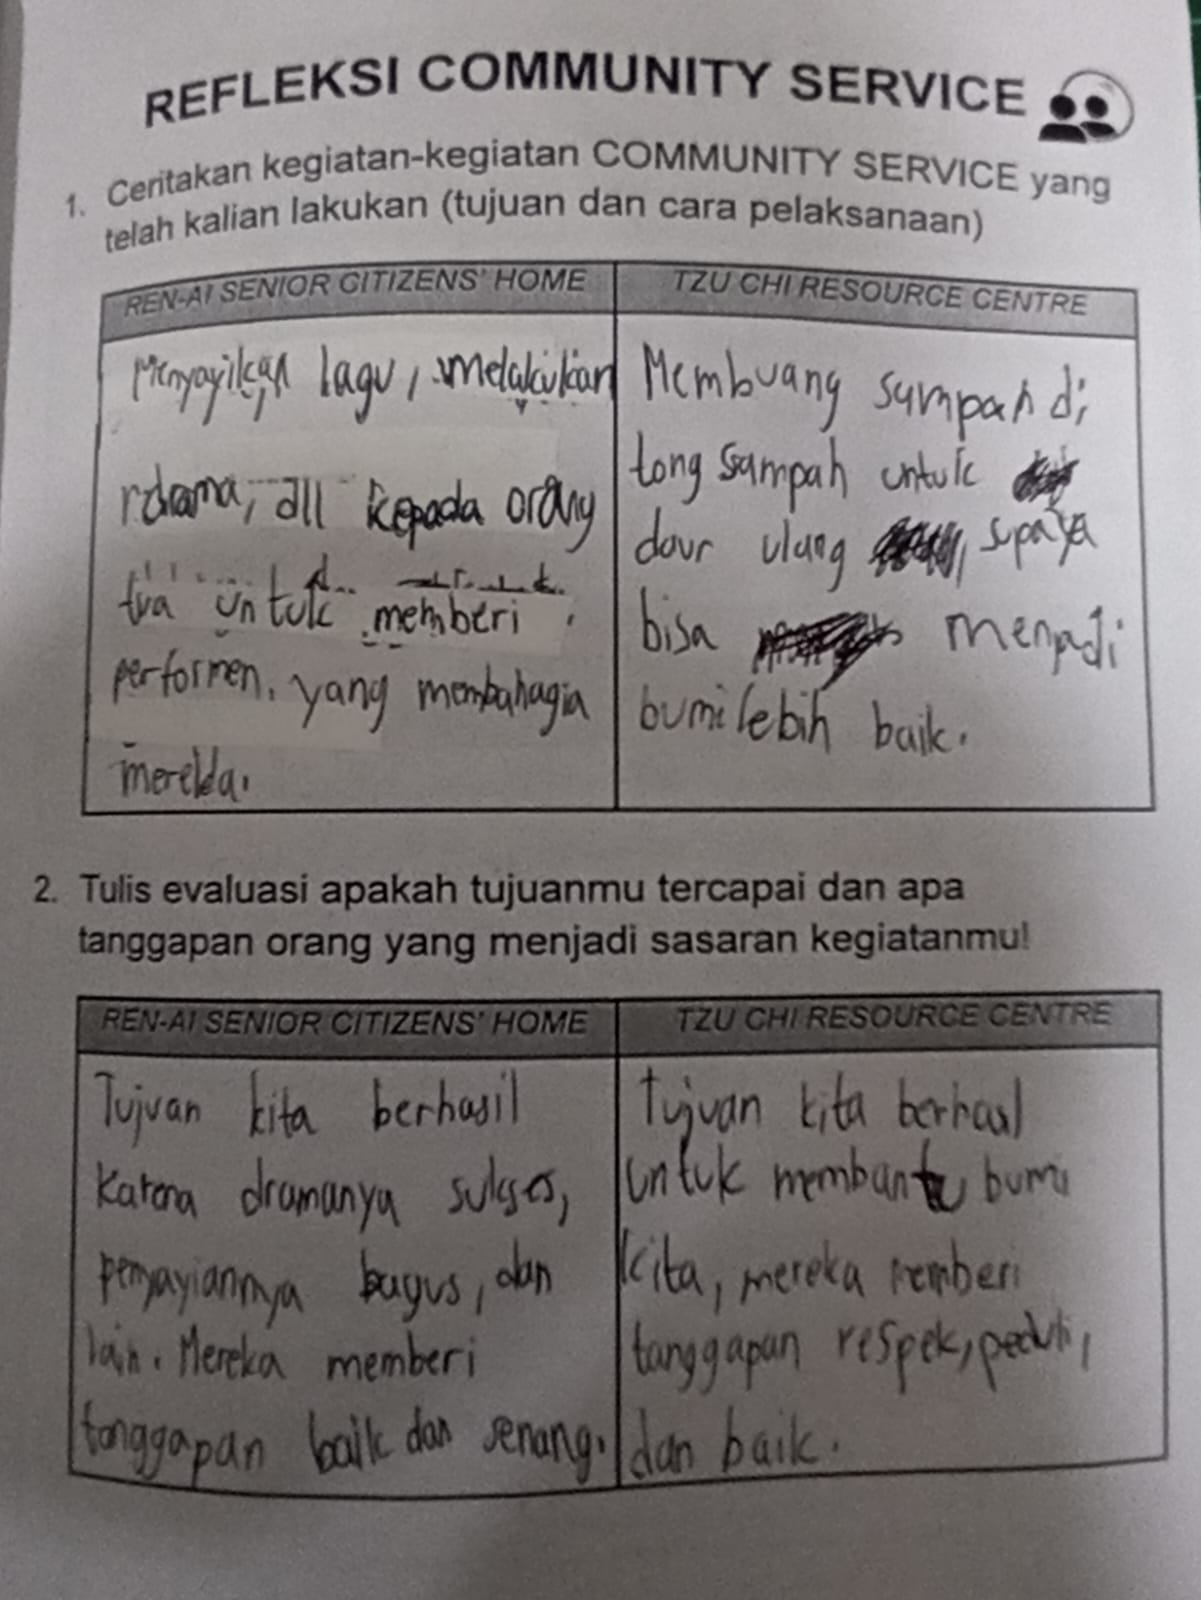 REFLEKSI COMMUNITY SERVICE
1. Ceritakan kegiatan-kegiatan COMMUNITY SERVICE yang
telah kalian lakukan (tujuan dan cara pelaksanaan)
REN-AI SENIOR CITIZENS' HOME
Menyayikan lagu, melakukan
rdrama, dll kepada orang
tua untuk memberi
performen, yang membahagia
mereka.
TZU CHI RESOURCE CENTRE
Membuang sampah di
tong sampah untuk
daur ulang, supaya
bisa menjadi
bumi lebih baik.
2. Tulis evaluasi apakah tujuanmu tercapai dan apa
tanggapan orang yang menjadi sasaran kegiatanmu!
REN-AI SENIOR CITIZENS' HOME
Tujuan kita berhasil
Karena dramanya sukses,
penyayiannya bagus, dan
lain. Mereka memberi
tanggapan baik dan senang.
TZU CHI RESOURCE CENTRE
Tujuan kita berhasil
untuk membantu bumi
kita, mereka memberi
tanggapan respek, peduli,
dan baik.